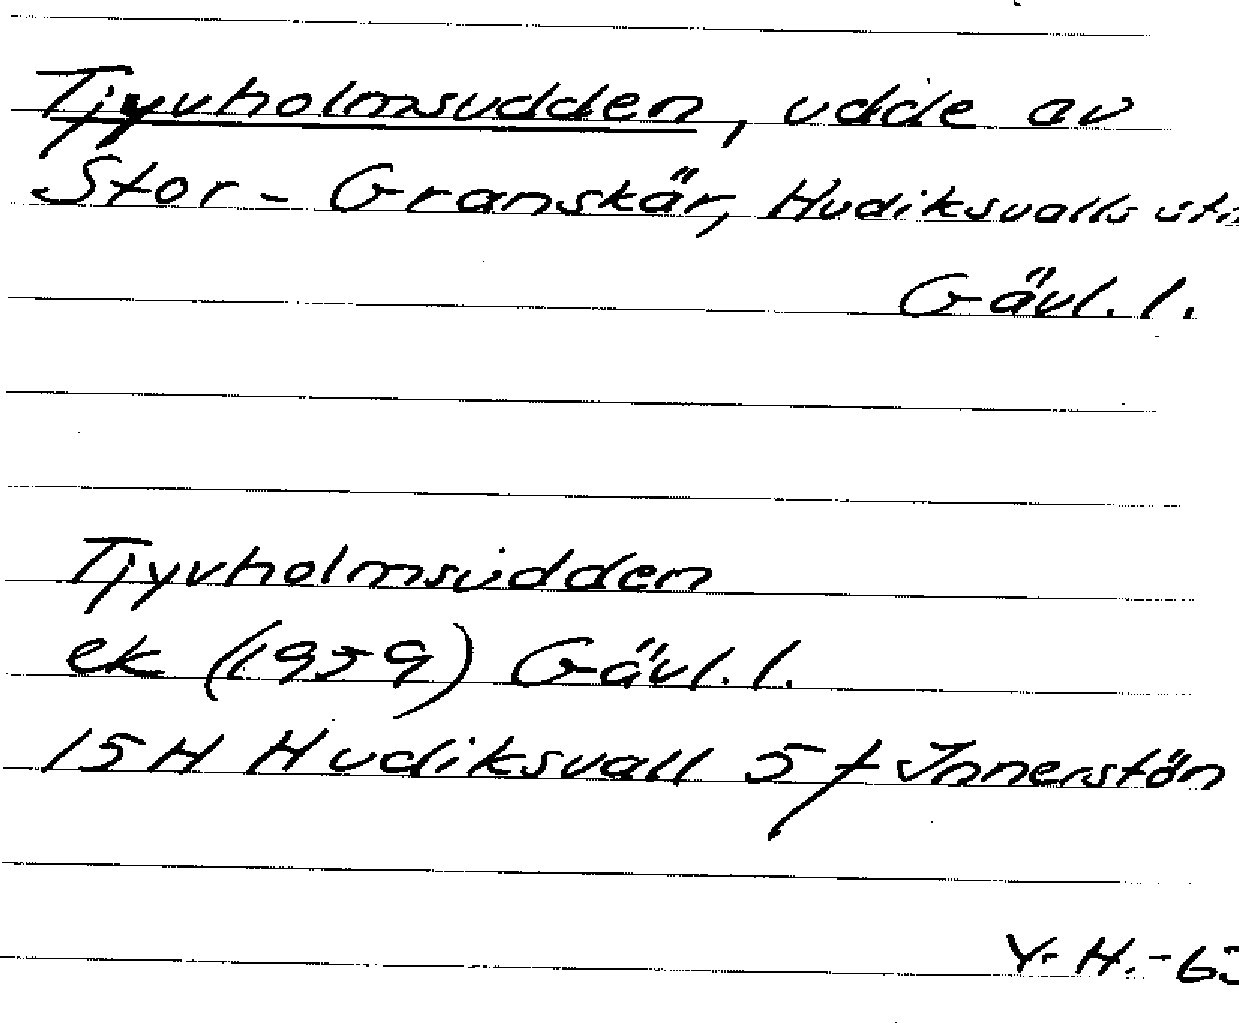 Tjyvholmsudden, udde av
Stor-Granskär, Hudiksvalls
Gävl. l.
Tjyvholmsudden
ek (1959) Gävl. l.
15H Hudiksvall 5f Innerstön
Y.H.-63